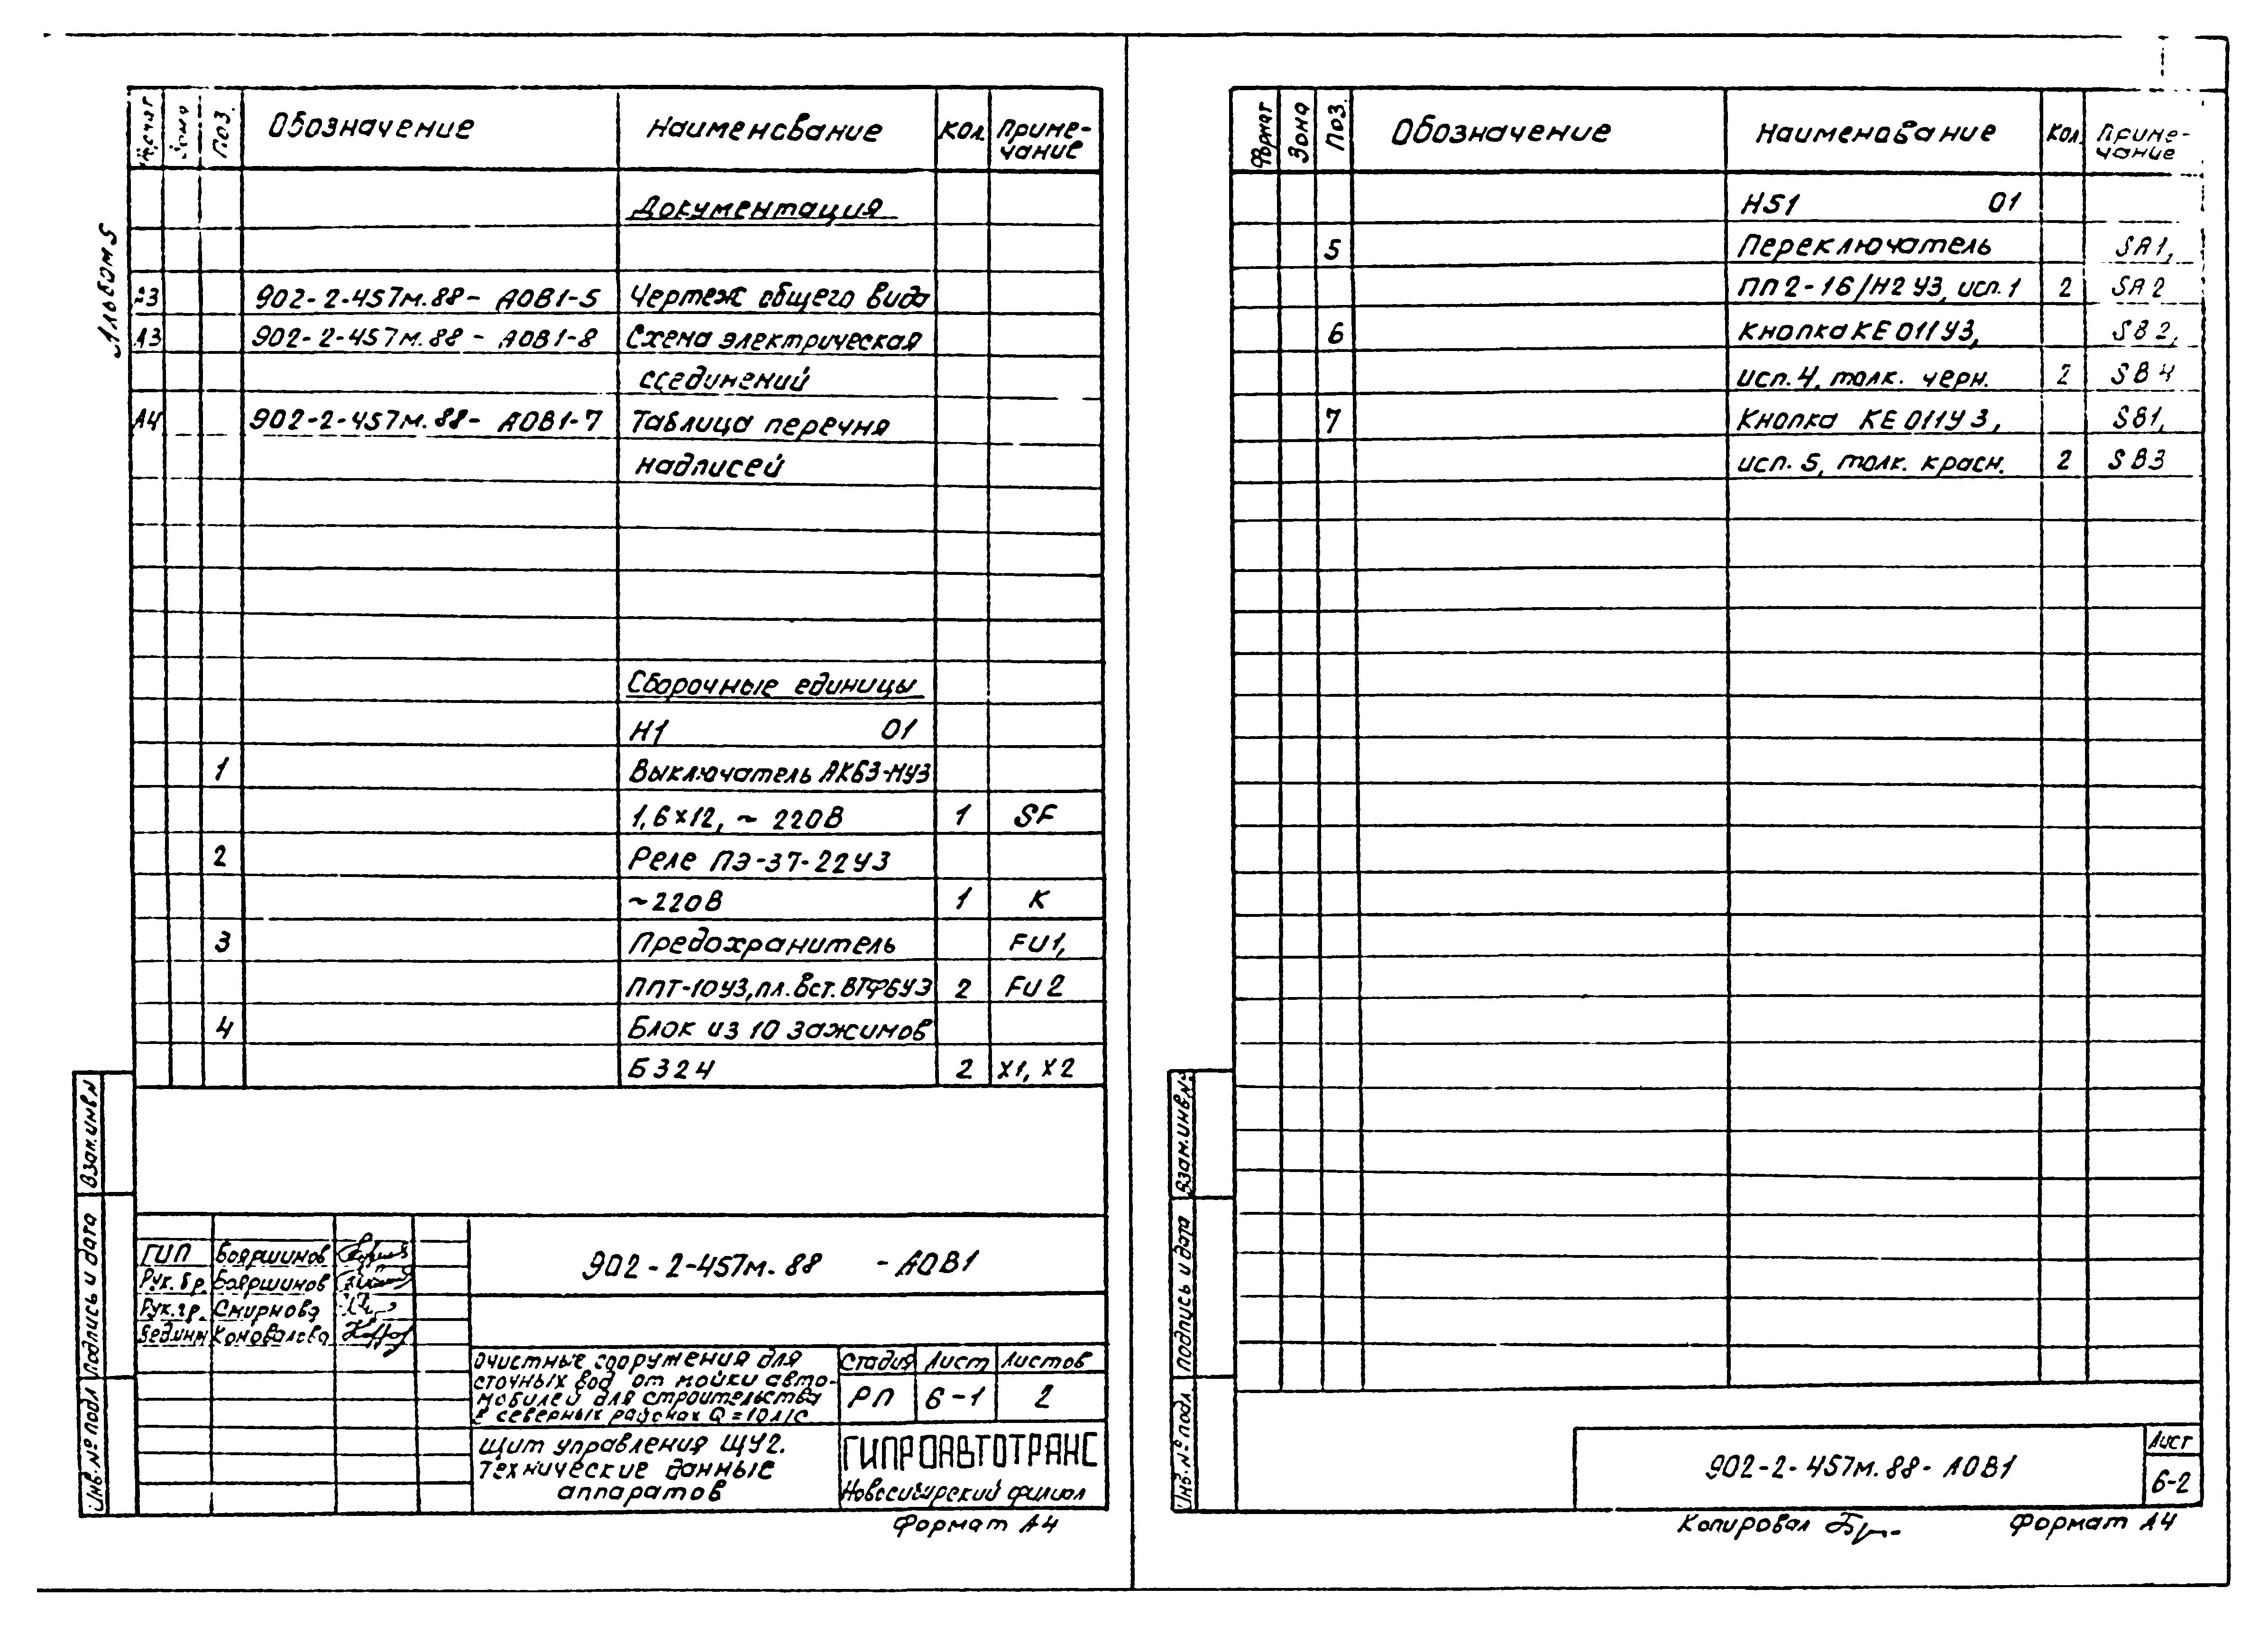 Альбом 5
Формат Зона Поз. Обозначение Наименование Кол. Приме-
чание
Документация
А3 902-2-457м.88- АОВ1-5 Чертеж общего вида
А3 902-2-457м.88 - АОВ1-8 Схема электрическая
соединений
А4 902-2-457м.88- АОВ1-7 Таблица перечня
надписей
Сборочные единицы
Н1 01
1 Выключатель АК63-МУ3
1,6×12, ~ 220В 1 SF
2 Реле ПЭ-37-22У3
~220В 1 К
3 Предохранитель FU1,
ППТ-10У3,пл.вст.ВТФ6У3 2 FU2
4 Блок из 10 зажимов
Б324 2 X1, X2
Взам.инв.№
Подпись и дата
Инв.№ подл
ГИП Бояршинов
Рук.бр. Бояршинов
Рук.гр. Смирнова
Вед.инж Коновалова
902-2-457м.88 - АОВ1
Очистные сооружения для
сточных вод от мойки авто-
мобилей для строительства
в северных районах Q=10л/с
Стадия Лист Листов
РП 6-1 2
Щит управления ЩУ2.
Технические данные
аппаратов
ГИПРОАВТОТРАНС
Новосибирский филиал
Формат А4
Формат Зона Поз. Обозначение Наименование Кол. Приме-
чание
HS1 01
5 Переключатель SA1,
ПП2-16/Н2У3, исп.1 2 SA2
6 Кнопка КЕ011У3, SB2,
исп.4, толк. черн. 2 SB4
7 Кнопка КЕ011У3, SB1,
исп. 5, толк. красн. 2 SB3
Взам.инв.№
Подпись и дата
Инв.№ подл.
902-2-457м.88- АОВ1
Лист
6-2
Копировал
Формат А4